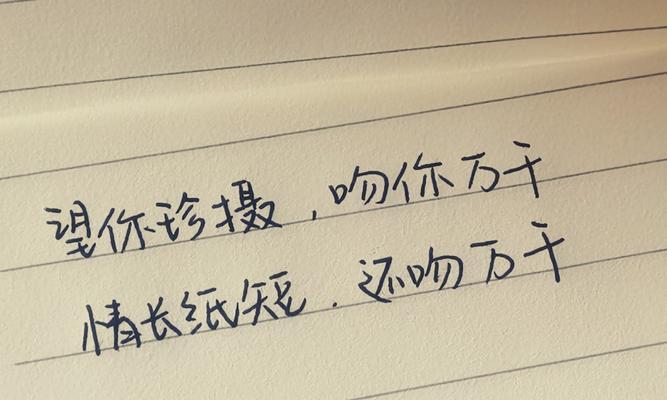 望你珍摄，吻你万千
情长纸短．还吻万千